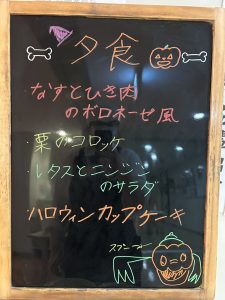 夕食
・なすとひき肉
のボロネーゼ風
・栗のコロッケ
・レタスとニンジン
のサラダ
・ハロウィンカップケーキ